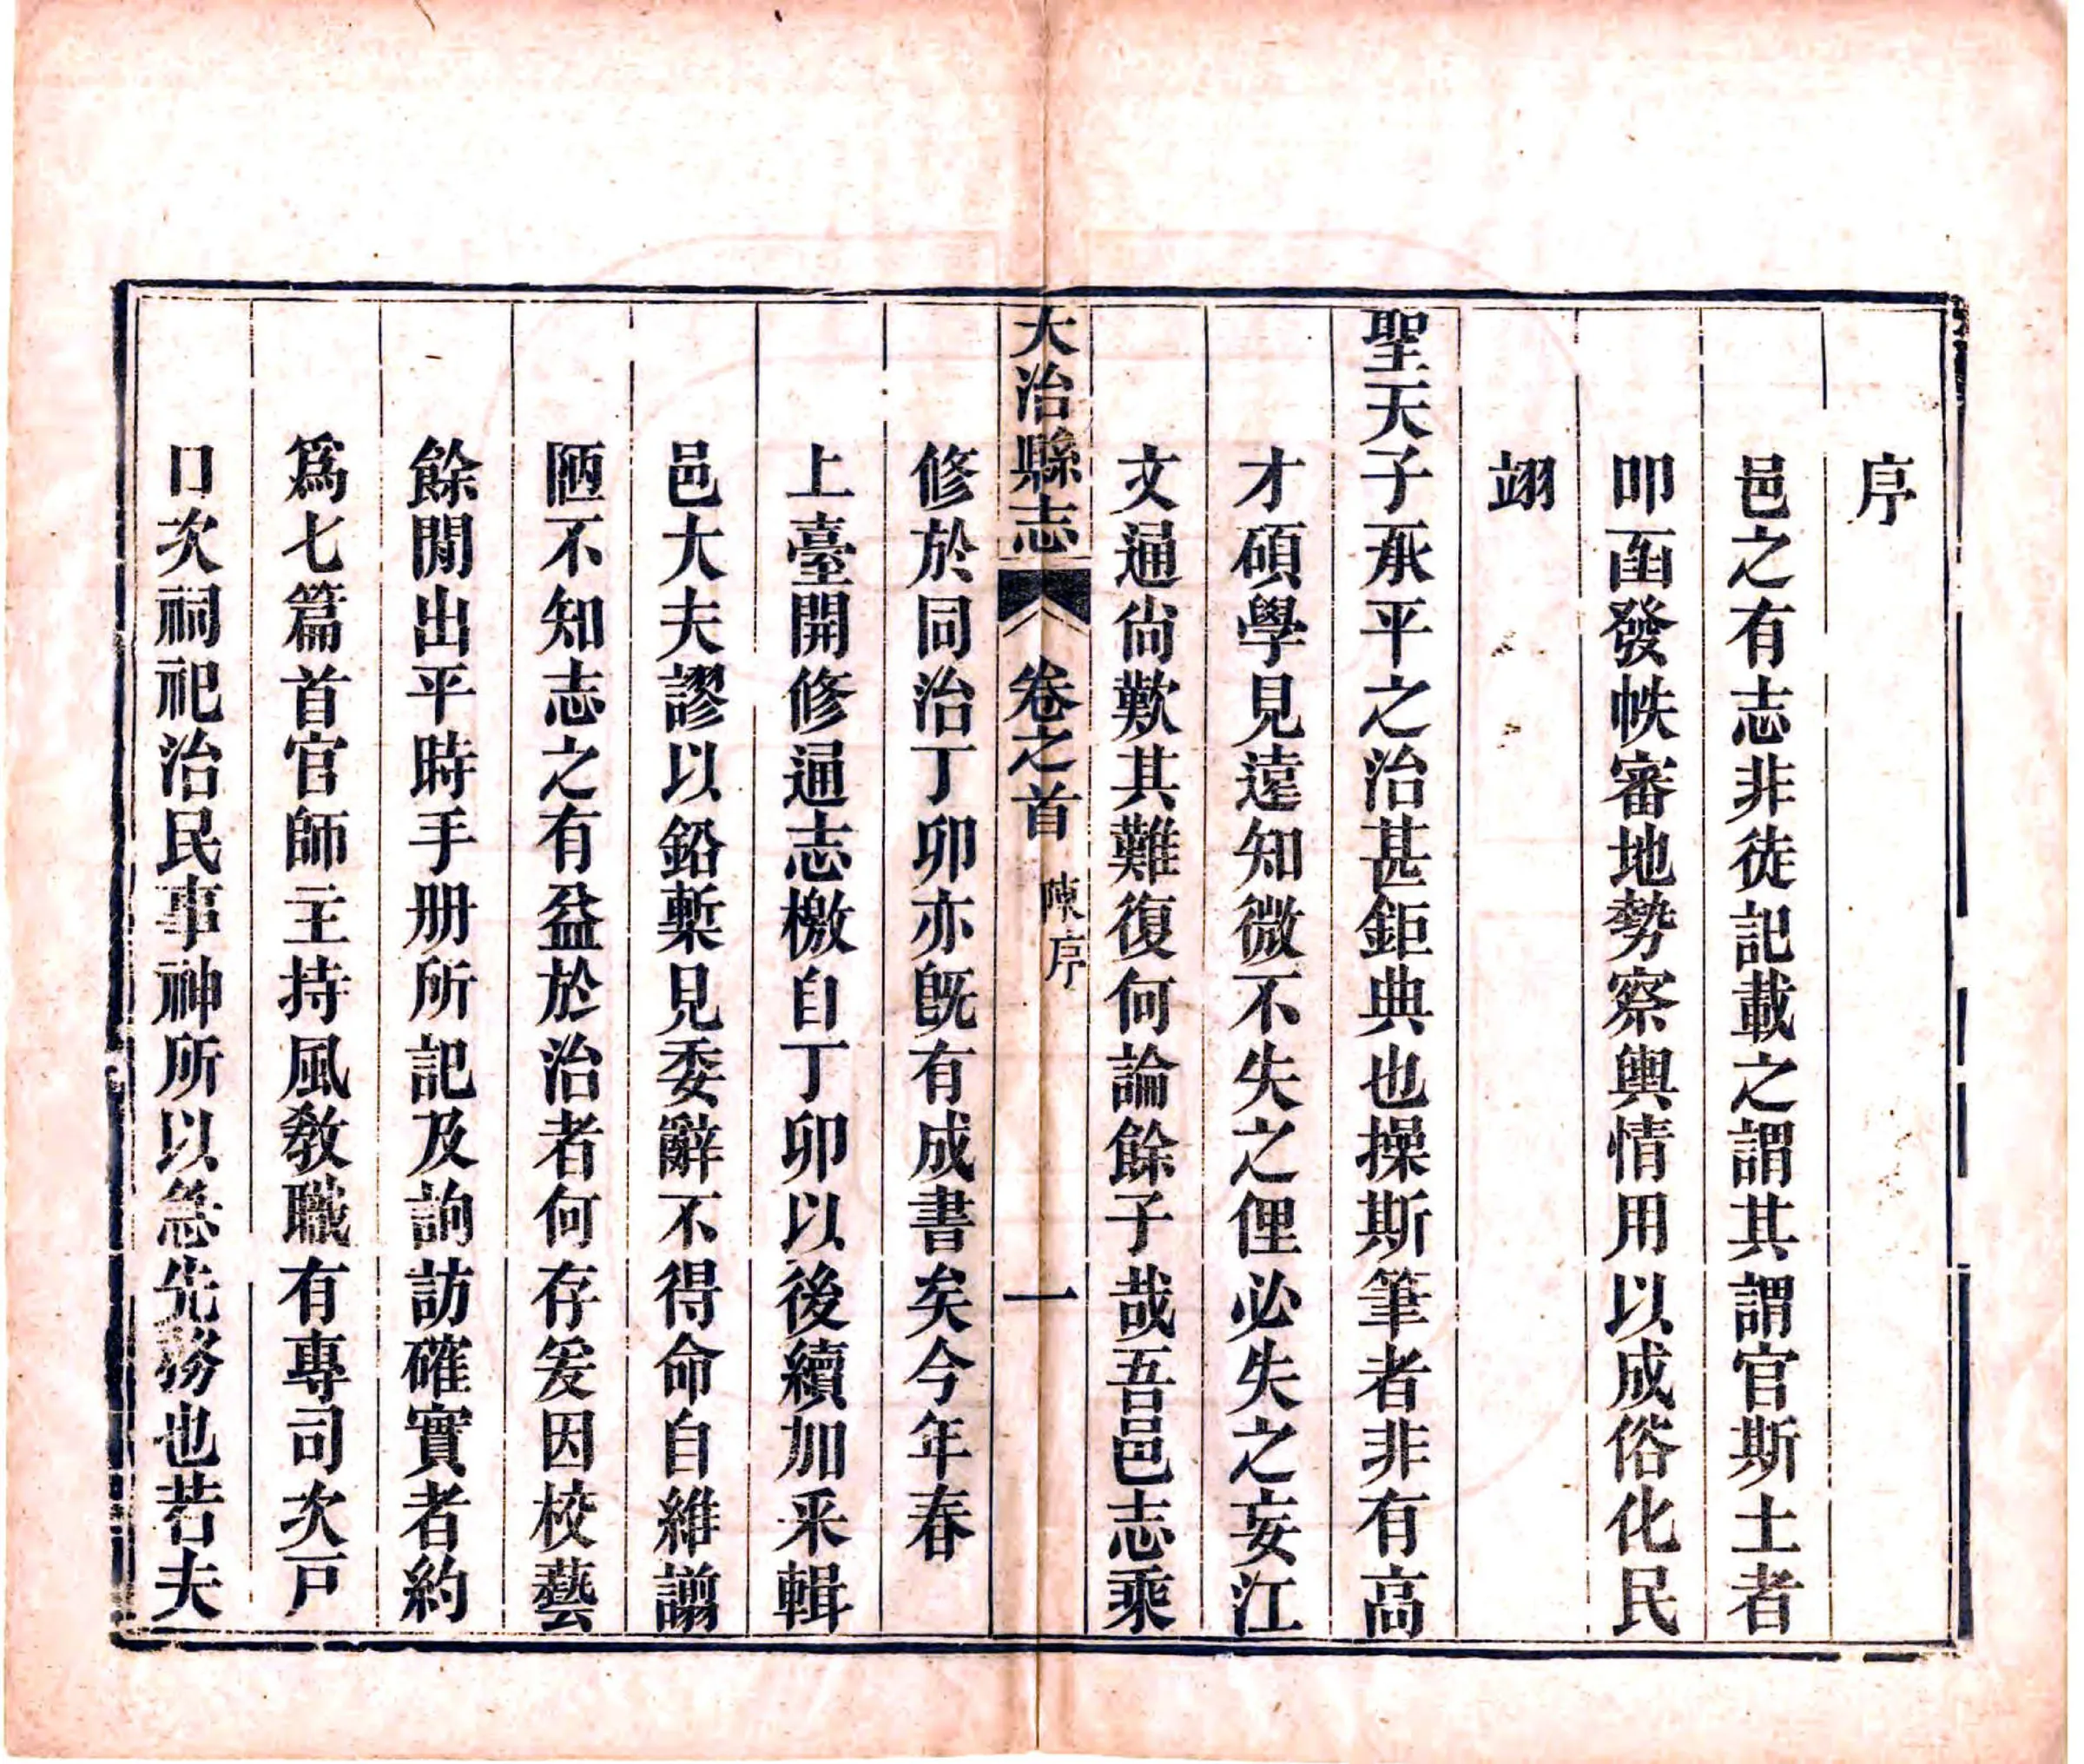 序
邑之有志非徒記載之謂其謂官斯土者
叩函發帙審地勢察輿情用以成俗化民
翊
聖天子承平之治甚鉅典也操斯筆者非有高
才碩學見遠知微不失之俚必失之妄江
文通尙歎其難復何論餘子哉吾邑志乘
大冶縣志
卷之首
陳序
一
修於同治丁卯亦旣有成書矣今年春
上臺開修通志檄自丁卯以後續加采輯
邑大夫謬以鉛槧見委辭不得命自維譾
陋不知志之有益於治者何存爰因校藝
餘閒出平時手册所記及詢訪確實者約
爲七篇首官師主持風教職有專司次戸
口次祠祀治民事神所以急先務也若夫